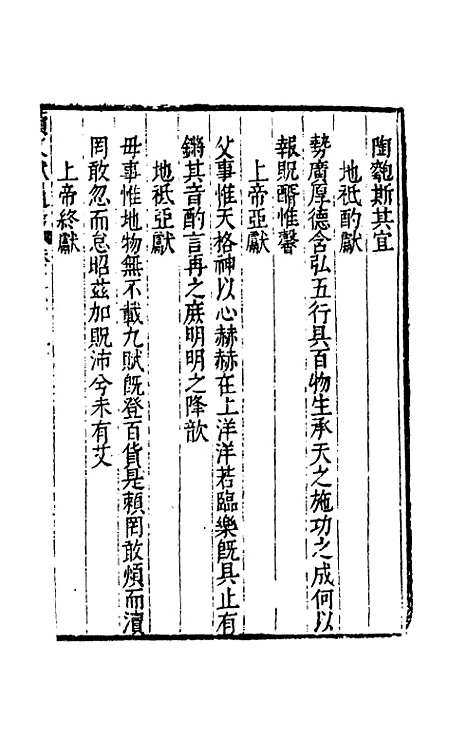 陶匏斯其宜
地祗酌獻
勢廣厚德含弘五行具百物生承天之施功之成何以
報既醑惟馨
上帝亞獻
父事惟天格神以心赫赫在上洋洋若臨樂既具止有
鏘其音酌言再之庶明明之降歆
地祗亞獻
毋事惟地物無不載九賦既登百貨是賴罔敢煩而瀆
罔敢忽而怠昭茲加貺沛兮未有艾
上帝終獻